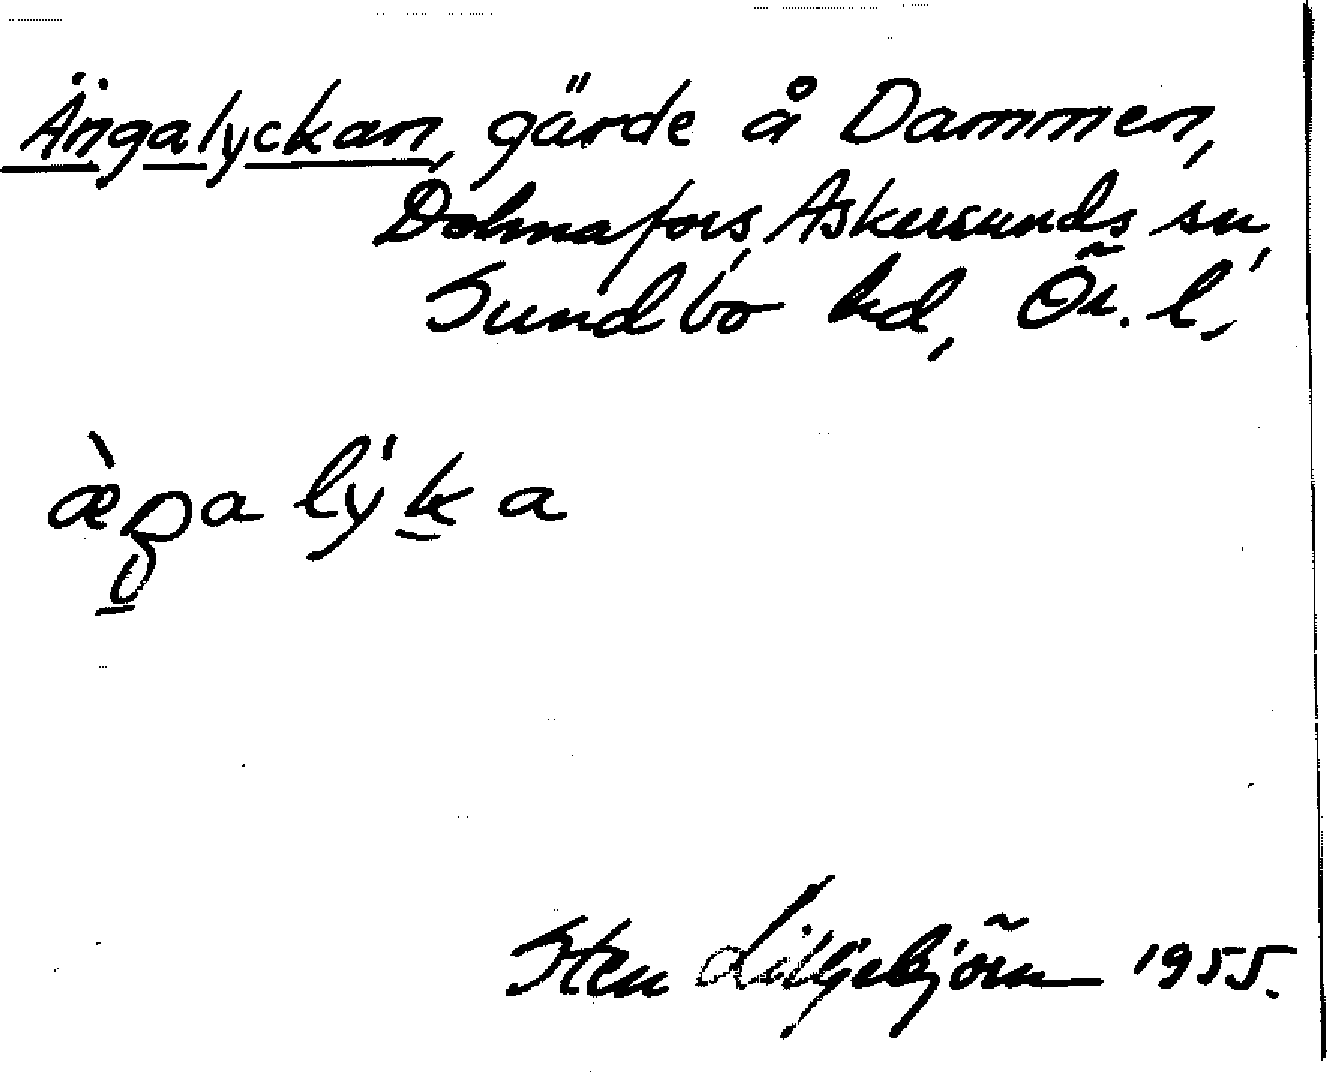 Ängalyckan, gärde å Dammen,
Dohnafors, Askersunds sn,
Sundbo hd, Ör. l.
Sten Liljebjörn 1955.